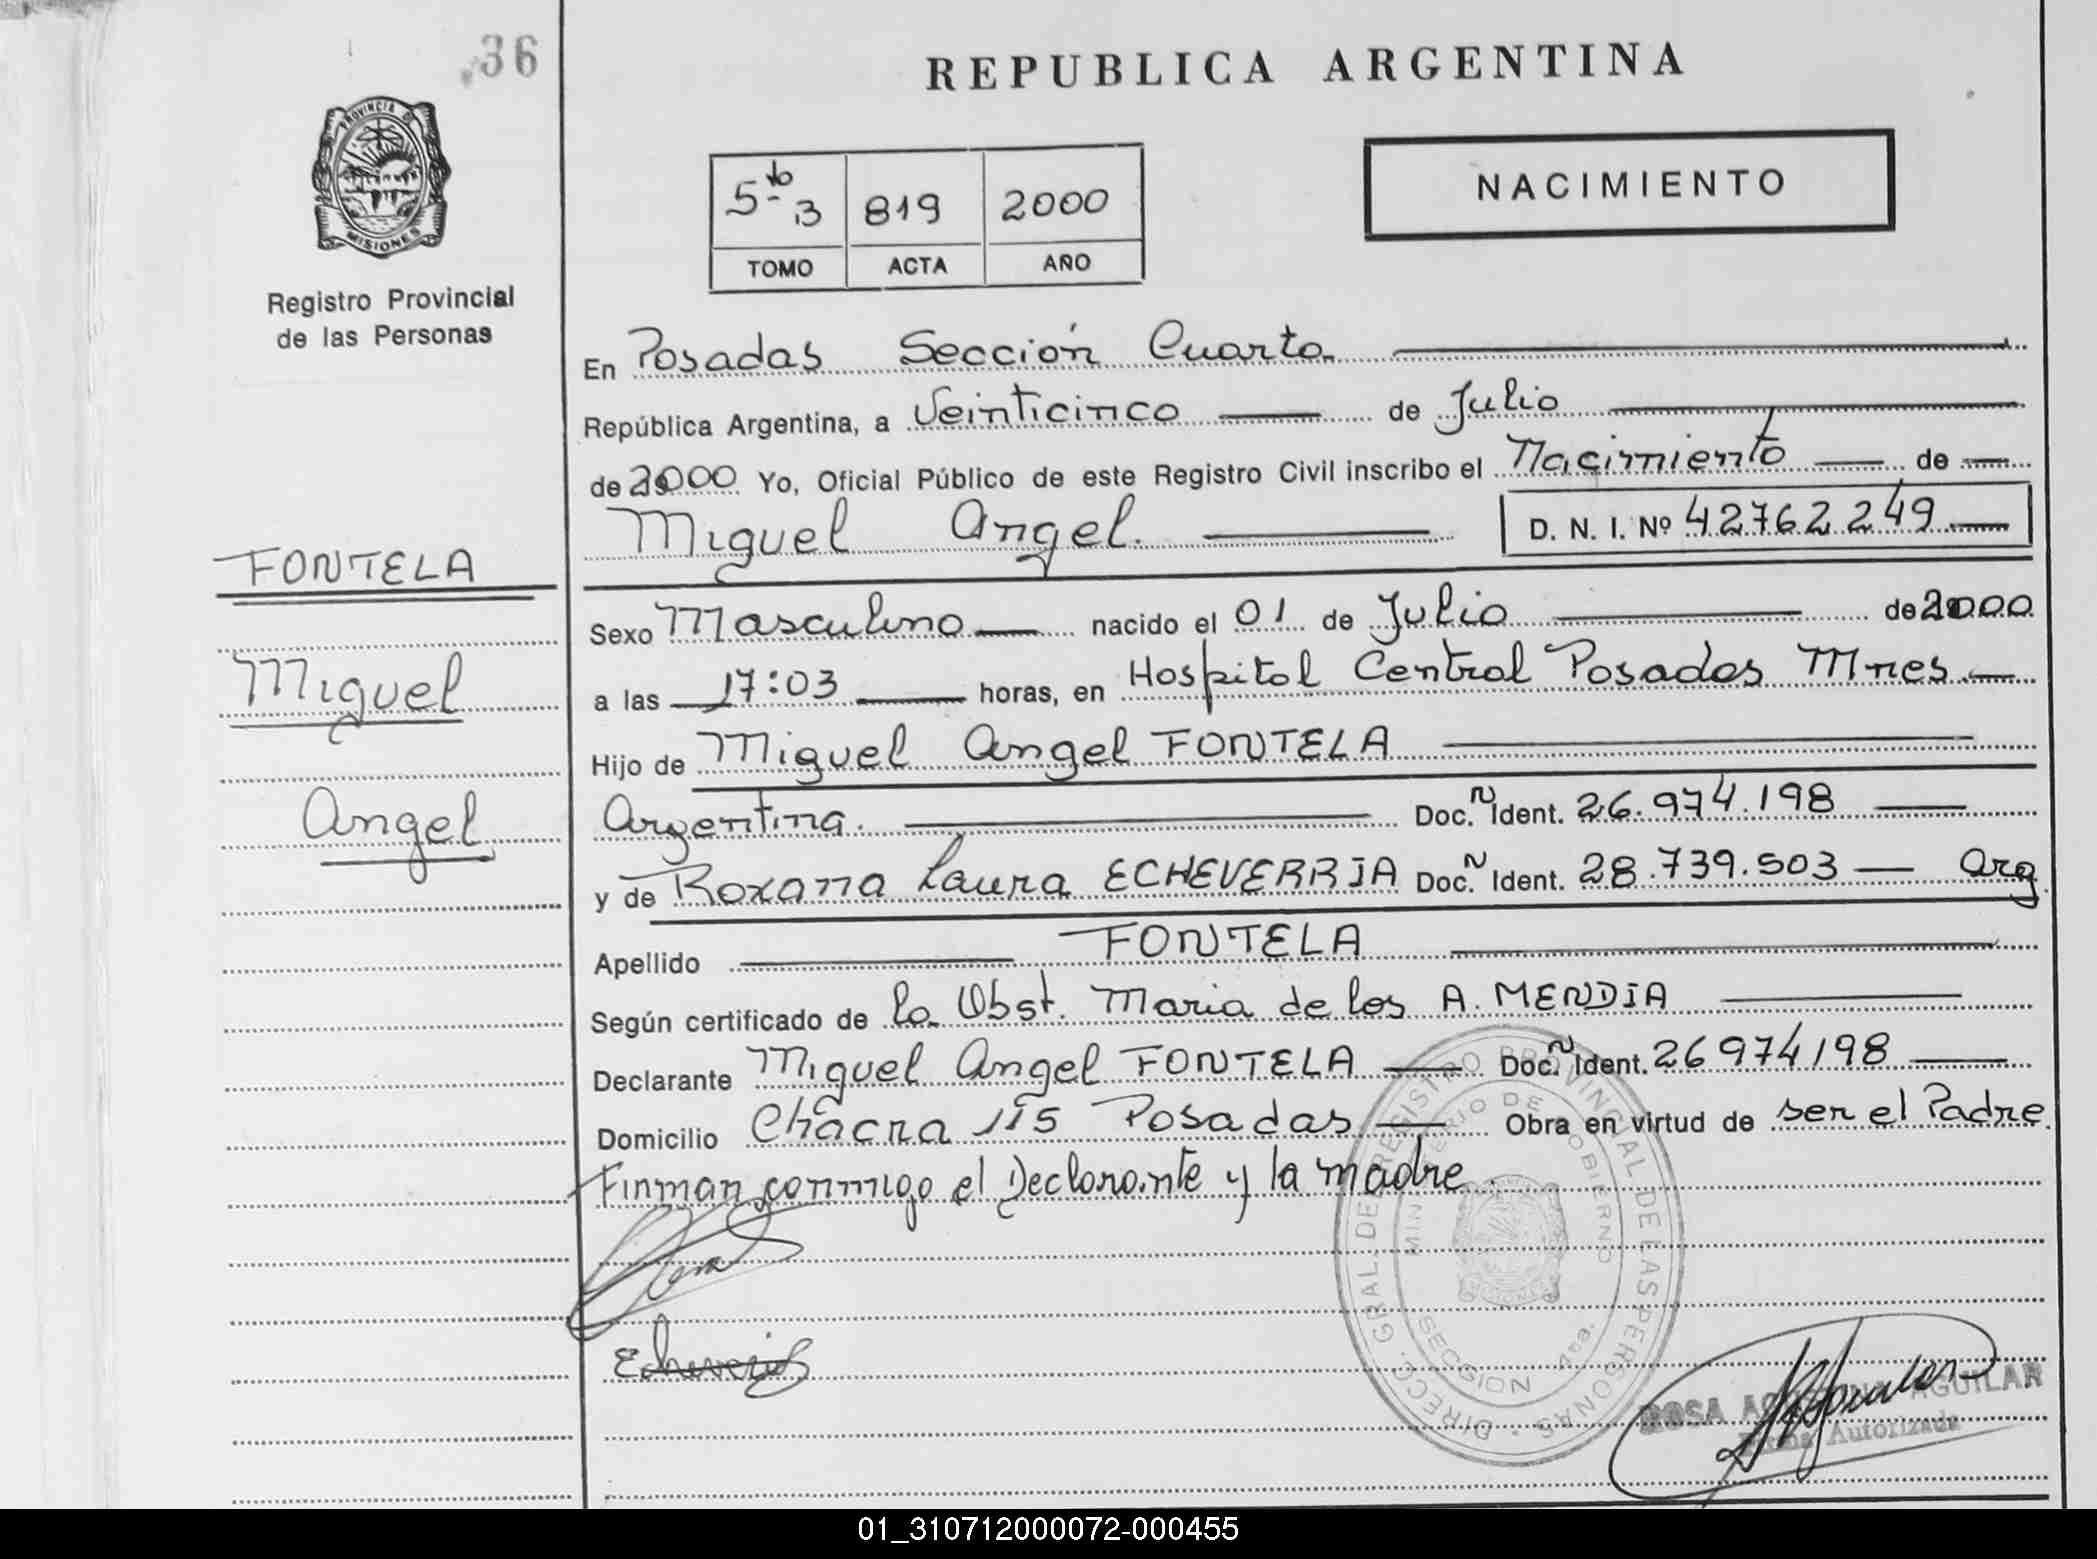 36
PROVINCIA DE
MISIONES
Registro Provincial
de las Personas
REPUBLICA ARGENTINA
5to B 819 2000
TOMO ACTA AÑO
NACIMIENTO
En Posadas Sección Cuarta
República Argentina, a Veinticinco de Julio
de 2000 Yo, Oficial Público de este Registro Civil inscribo el Nacimiento de
Miguel Angel. D. N. I. Nº 42762249
FONTELA
Miguel
Angel
Sexo Masculino nacido el 01 de Julio de 2000
a las 17:03 horas, en Hospital Central Posadas Mnes
Hijo de Miguel Angel FONTELA
Argentina. Doc. Ident. 26.974.198
y de Roxana Laura ECHEVERRIA Doc. Ident. 28.739.503 Arg.
Apellido FONTELA
Según certificado de la Obst. Maria de los A. MENDIA
Declarante Miguel Angel FONTELA Doc. Ident. 26974198
Domicilio Chacra 115 Posadas Obra en virtud de ser el Padre.
Firman conmigo el Declarante y la madre.
DIRECC. GRAL. DEL REGISTRO PROVINCIAL DE LAS PERSONAS
MINISTERIO DE GOBIERNO
SECCION 4ta.
Echeverria
ROSA AGUILAR
Firma Autorizada
01_310712000072-000455